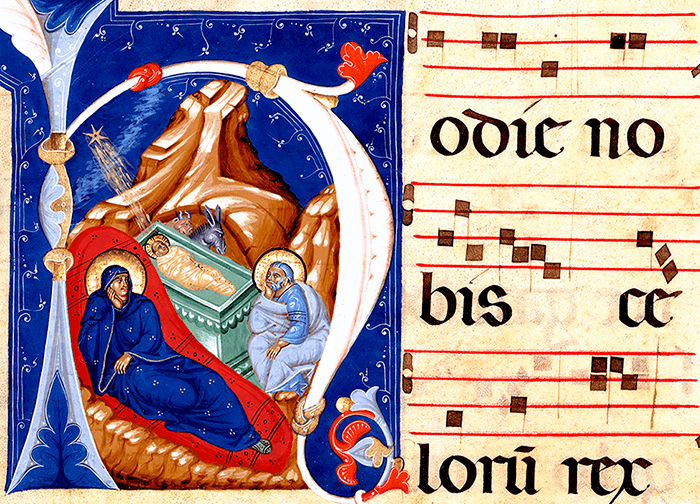 odie no
bis ce
lorū rex